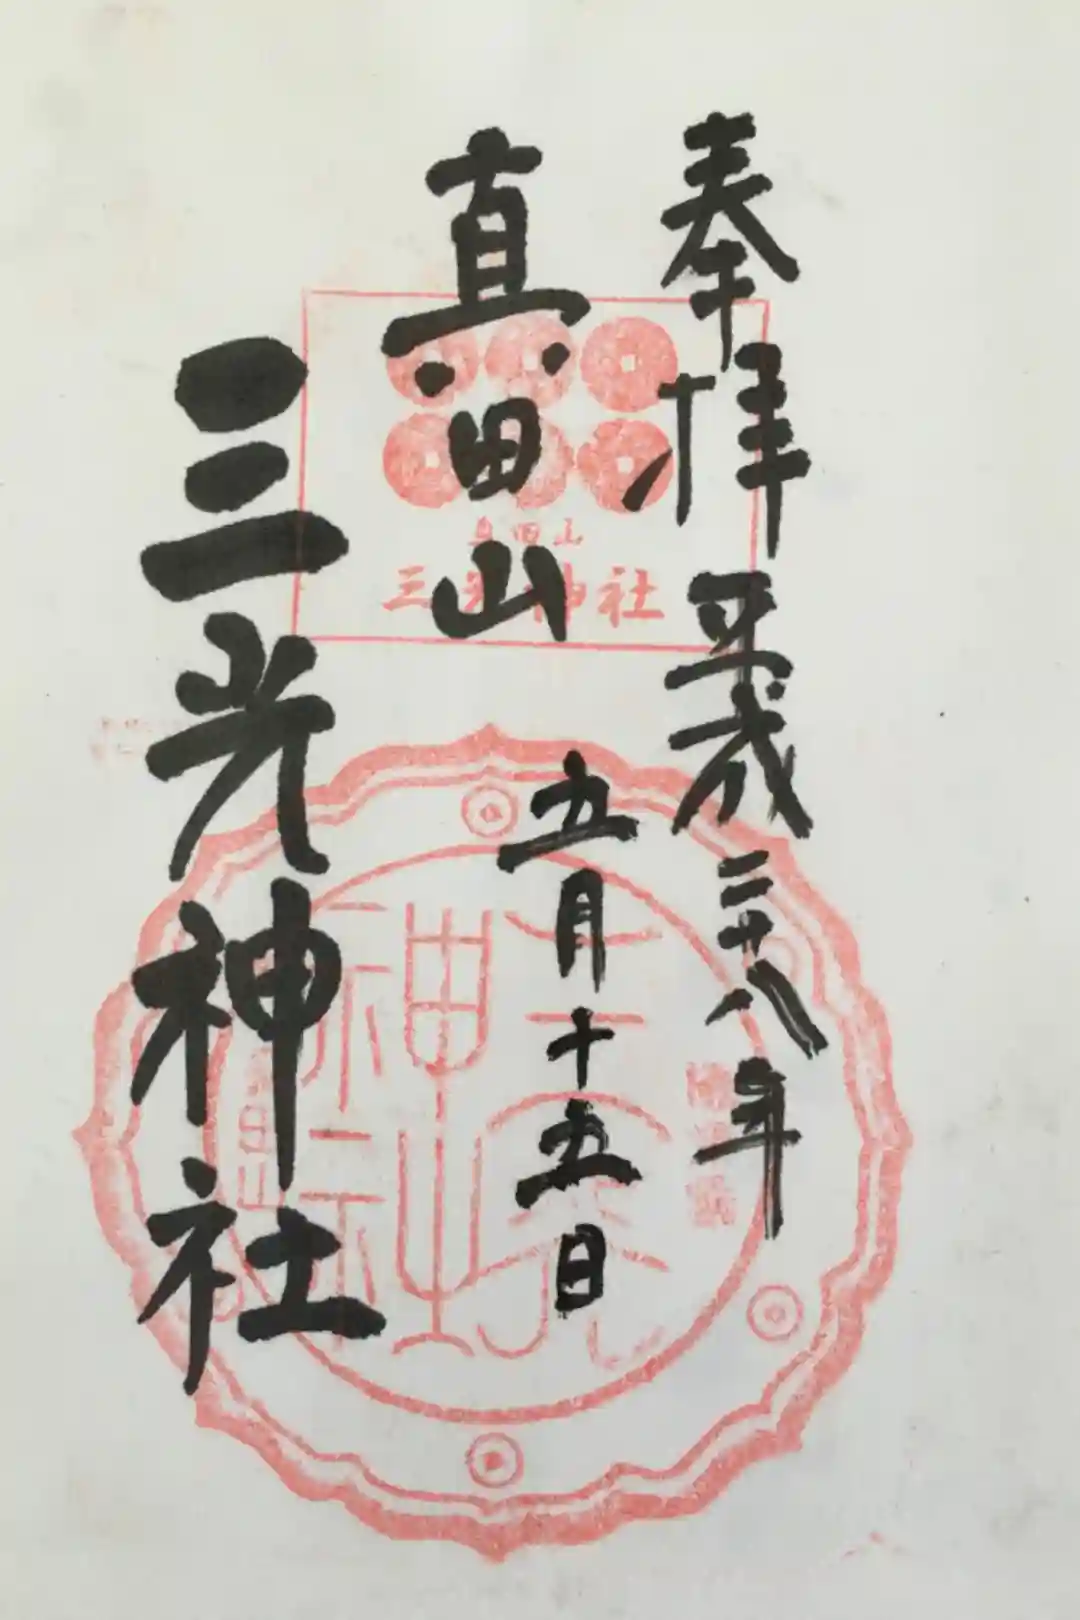 奉拝
平成二十八年
五月十五日
真田山
三光神社
真田山
三光神社
三光神社